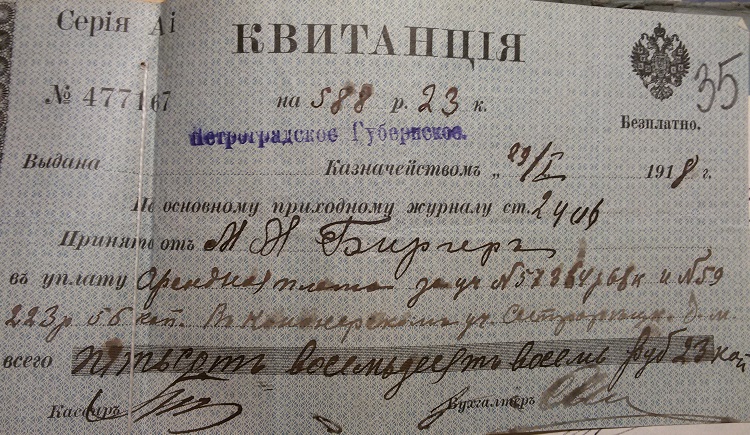 Серія Аі КВИТАНЦІЯ
35
№ 477167 на 588 р. 23 к.
Безплатно.
Петроградское Губернское.
Выдана Казначействомъ „29/I 1918 г.
По основному приходному журналу ст. 2406
Принято отъ М М Биргеръ
въ уплату Арендная плата за уч №57 364р 68к и №59
223р 55 коп. уч.
всего пятьсотъ восемьдесятъ восемь руб 23 коп
Кассиръ Бухгалтеръ